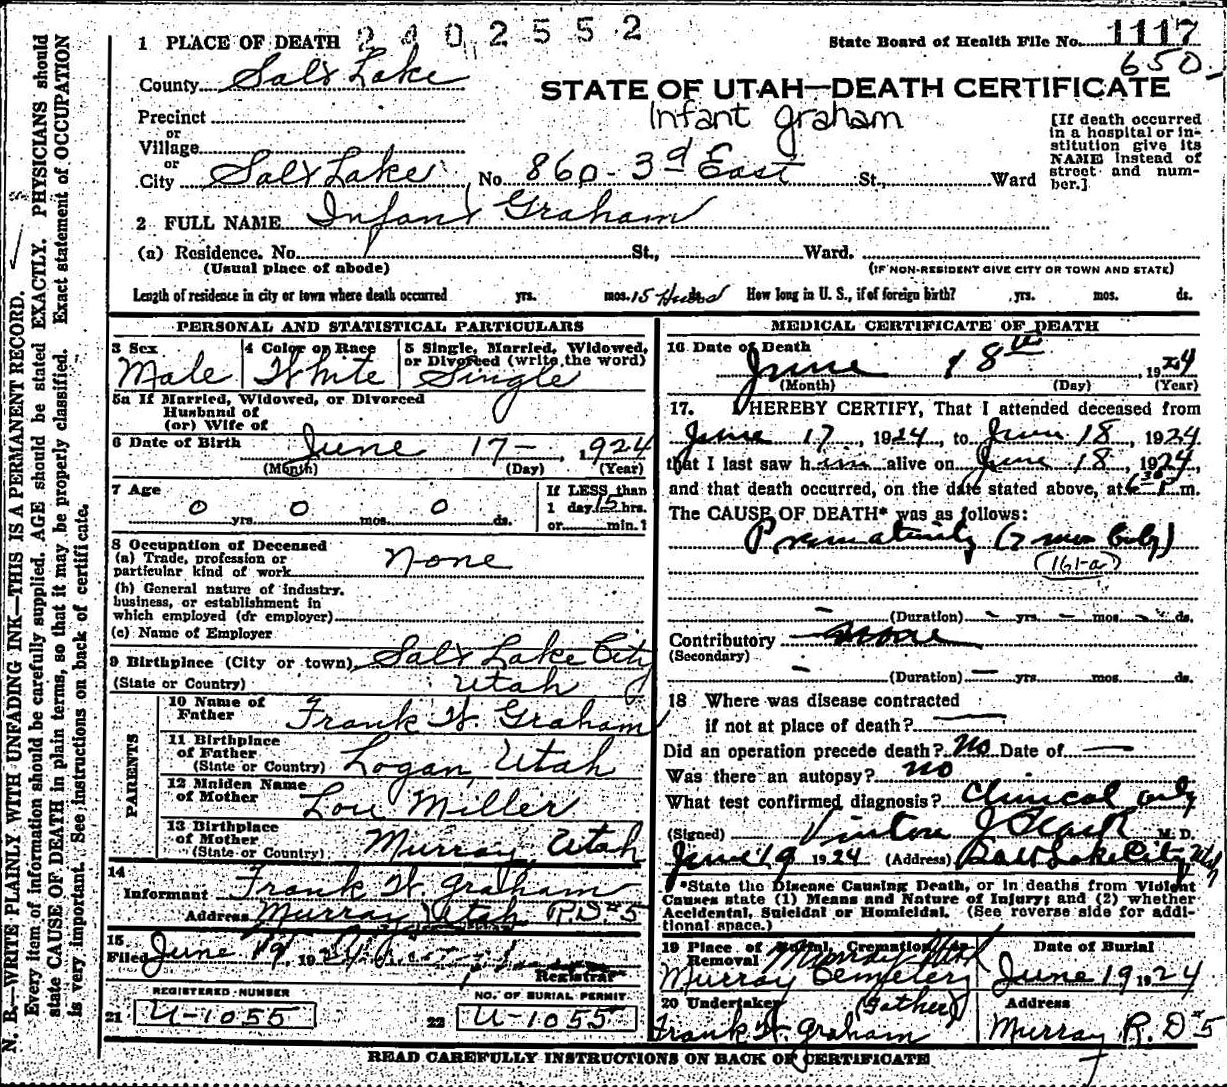 2402552
1 PLACE OF DEATH
State Board of Health File No. 1117
650
County Salt Lake
STATE OF UTAH—DEATH CERTIFICATE
Infant Graham
Precinct
or
Village
or
City Salt Lake, No. 860 - 3d East St., Ward
[If death occurred
in a hospital or in-
stitution give its
NAME instead of
street and num-
ber.]
2 FULL NAME Infant Graham
(a) Residence. No. St., Ward.
(Usual place of abode)
(IF NON-RESIDENT GIVE CITY OR TOWN AND STATE)
Length of residence in city or town where death occurred yrs. mos. 15 Hours ds. How long in U. S., if of foreign birth? yrs. mos. ds.
PERSONAL AND STATISTICAL PARTICULARS
3 Sex Male
4 Color or Race White
5 Single, Married, Widowed,
or Divorced (write the word)
Single
5a If Married, Widowed, or Divorced
Husband of
(or) Wife of
6 Date of Birth June 17 - 1924
(Month) (Day) (Year)
7 Age 0 yrs. 0 mos. 0 ds.
If LESS than
1 day 15 hrs.
or min.?
8 Occupation of Deceased
(a) Trade, profession or
particular kind of work None
(b) General nature of industry,
business, or establishment in
which employed (or employer)
(c) Name of Employer
9 Birthplace (City or town) Salt Lake City
(State or Country) Utah
PARENTS
10 Name of
Father Frank W. Graham
11 Birthplace
of Father
(State or Country) Logan, Utah
12 Maiden Name
of Mother Lou Miller
13 Birthplace
of Mother
(State or Country) Murray, Utah
14
Informant Frank W Graham
Address Murray Utah R D #5
15
Filed June 19, 1924
Registrar
REGISTERED NUMBER
21 U-1055
NO. OF BURIAL PERMIT
22 U-1055
MEDICAL CERTIFICATE OF DEATH
16 Date of Death
June 18th 1924
(Month) (Day) (Year)
17. I HEREBY CERTIFY, That I attended deceased from
June 17, 1924, to June 18, 1924
that I last saw him alive on June 18, 1924,
and that death occurred, on the date stated above, at 6 30 m.
The CAUSE OF DEATH* was as follows:
Prematurity (7 mos baby)
(161-a)
(Duration) yrs. mos. ds.
Contributory none
(Secondary)
(Duration) yrs. mos. ds.
18 Where was disease contracted
if not at place of death?
Did an operation precede death? No Date of
Was there an autopsy? no
What test confirmed diagnosis? Clinical only
(Signed) M. D.
June 19 1924 (Address) Salt Lake City Utah
*State the Disease Causing Death, or in deaths from Violent
Causes state (1) Means and Nature of Injury; and (2) whether
Accidental, Suicidal or Homicidal. (See reverse side for addi-
tional space.)
19 Place of Burial, Cremation or
Removal Murray Utah
Murray Cemetery
Date of Burial
June 19 1924
20 Undertaker (Father)
Frank W. Graham
Address
Murray R. D #5
READ CAREFULLY INSTRUCTIONS ON BACK OF CERTIFICATE
N. B.—WRITE PLAINLY WITH UNFADING INK—THIS IS A PERMANENT RECORD.
Every item of information should be carefully supplied. AGE should be stated EXACTLY. PHYSICIANS should
state CAUSE OF DEATH in plain terms, so that it may be properly classified. Exact statement of OCCUPATION
is very important. See instructions on back of certificate.